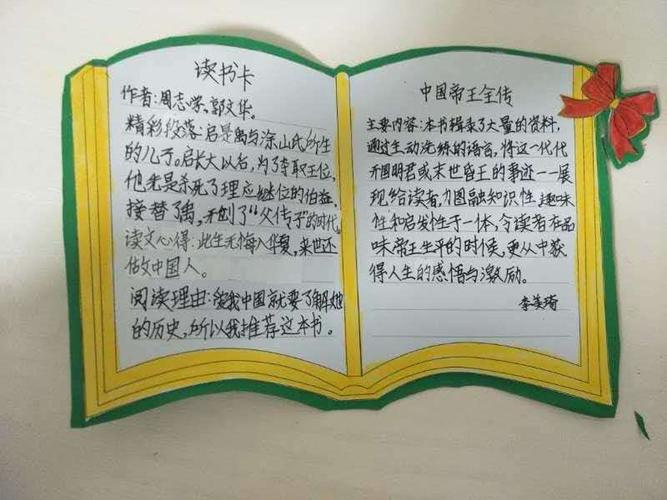 读书卡
作者:周志学、郭文华。
精彩段落:启是禹与涂山氏所生
的儿子。启长大以后,为了夺取王位,
他先是杀死了理应继位的伯益,
接替了禹,开创了“父传子”的时代。
读文心得:此生无悔入华夏,来世还
做中国人。
阅读理由:爱我中国就要了解她
的历史,所以我推荐这本书。
中国帝王全传
主要内容:本书辑录了大量的资料,
通过生动洗练的语言,将这一代代
开国明君或末世昏王的事迹一一展
现给读者,力图融知识性、趣味
性和启发性于一体,令读者在品
味帝王生平的时候,更从中获
得人生的感悟与激励。
李美琦